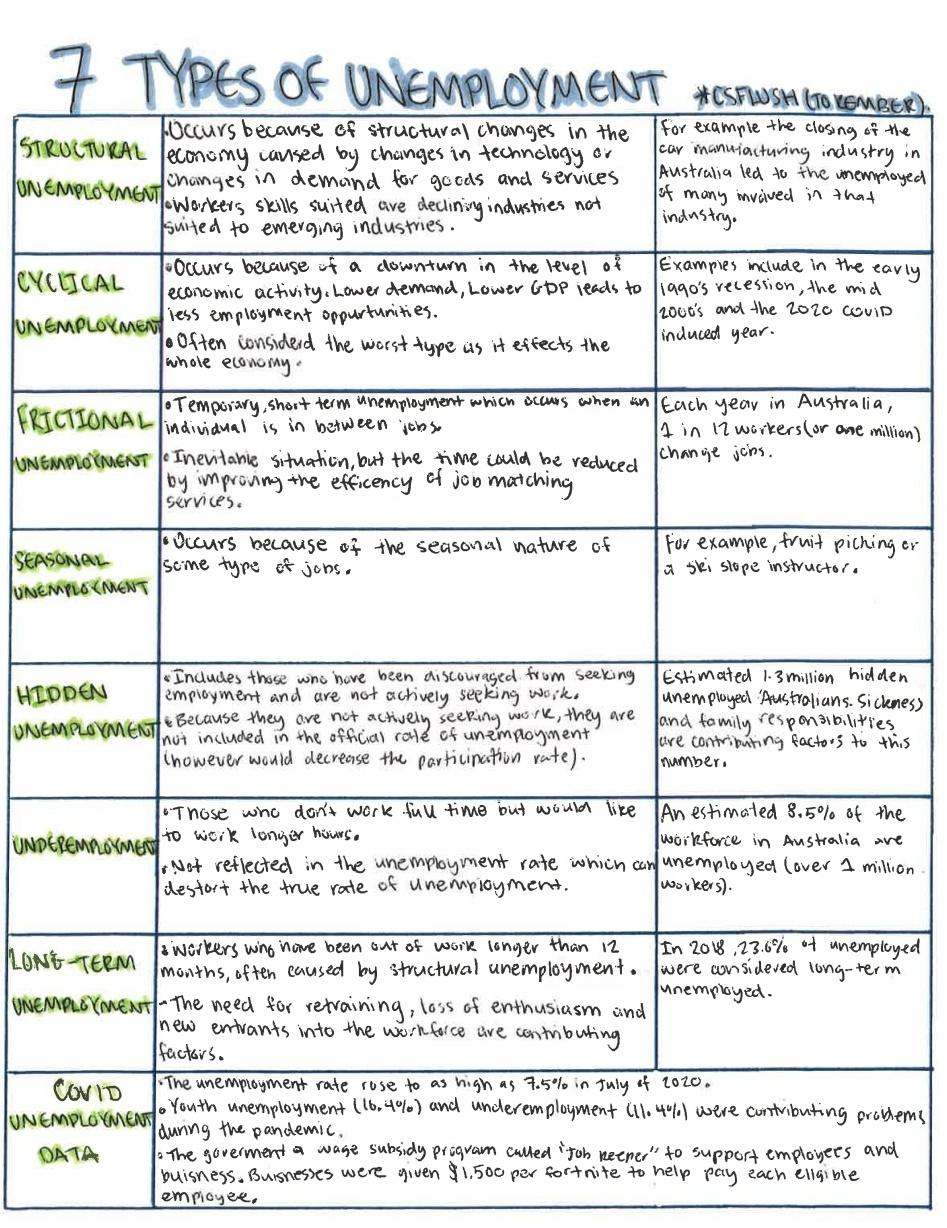 7 TYPES OF UNEMPLOYMENT *CSFLUSH (TO REMBER).
STRUCTURAL
UNEMPLOYMENT
•Occurs because of structural changes in the
economy caused by changes in technology or
changes in demand for goods and services
•Workers skills suited are declining industries not
suited to emerging industries.
For example the closing of the
car manufacturing industry in
Australia led to the unemployed
of many involved in that
industry.
CYCLICAL
UNEMPLOYMENT
•Occurs because of a downturn in the level of
economic activity. Lower demand, Lower GDP leads to
less employment oppurtunities.
•Often considerd the worst type as it effects the
whole economy.
Examples include in the early
1990's recession, the mid
2000's and the 2020 covid
induced year.
FRICTIONAL
UNEMPLOYMENT
•Temporary, short term unemployment which occurs when an
individual is in between jobs.
•Inevitable situation, but the time could be reduced
by improving the efficency of job matching
services.
Each year in Australia,
1 in 12 workers (or one million)
change jobs.
SEASONAL
UNEMPLOYMENT
•Occurs because of the seasonal nature of
some type of jobs.
For example, fruit piching or
a ski slope instructor.
HIDDEN
UNEMPLOYMENT
•Includes those who have been discouraged from seeking
employment and are not actively seeking work.
•Because they are not actively seeking work, they are
not included in the official rate of unemployment
(however would decrease the participation rate).
Estimated 1.3 million hidden
unemployed Australians. Sickness
and family responsibilities
are contributing factors to this
number.
UNDEREMPLOYMENT
•Those who don't work full time but would like
to work longer hours.
•Not reflected in the unemployment rate which can
destort the true rate of unemployment.
An estimated 8.5% of the
workforce in Australia are
unemployed (over 1 million
workers).
LONG-TERM
UNEMPLOYMENT
•Workers who have been out of work longer than 12
months, often caused by structural unemployment.
-The need for retraining, loss of enthusiasm and
new entrants into the workforce are contributing
factors.
In 2018, 23.6% of unemployed
were considered long-term
unemployed.
COVID
UNEMPLOYMENT
DATA
•The unemployment rate rose to as high as 7.5% in July of 2020.
•Youth unemployment (16.4%) and underemployment (11.4%) were contributing problems
during the pandemic.
•The goverment a wage subsidy program called "Job keeper" to support employers and
buisness. Buisnesses were given $1,500 per fortnite to help pay each eligible
employee.